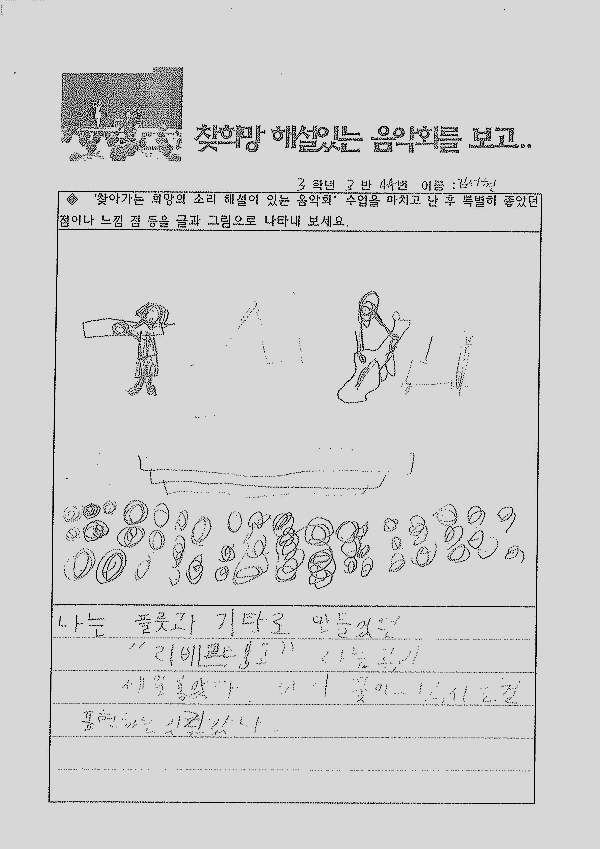 찾희망 해설있는 음악회를 보고..
3 학년 3 반 44번 이름 :
◈ '찾아가는 희망의 소리 해설이 있는 음악회' 수업을 마치고 난 후 특별히 좋았던
점이나 느낀 점 등을 글과 그림으로 나타내 보세요.
나는 플룻과 기타로 만들었던
"리베르탱고" 라는 곡이
제일 좋았다
표현하는